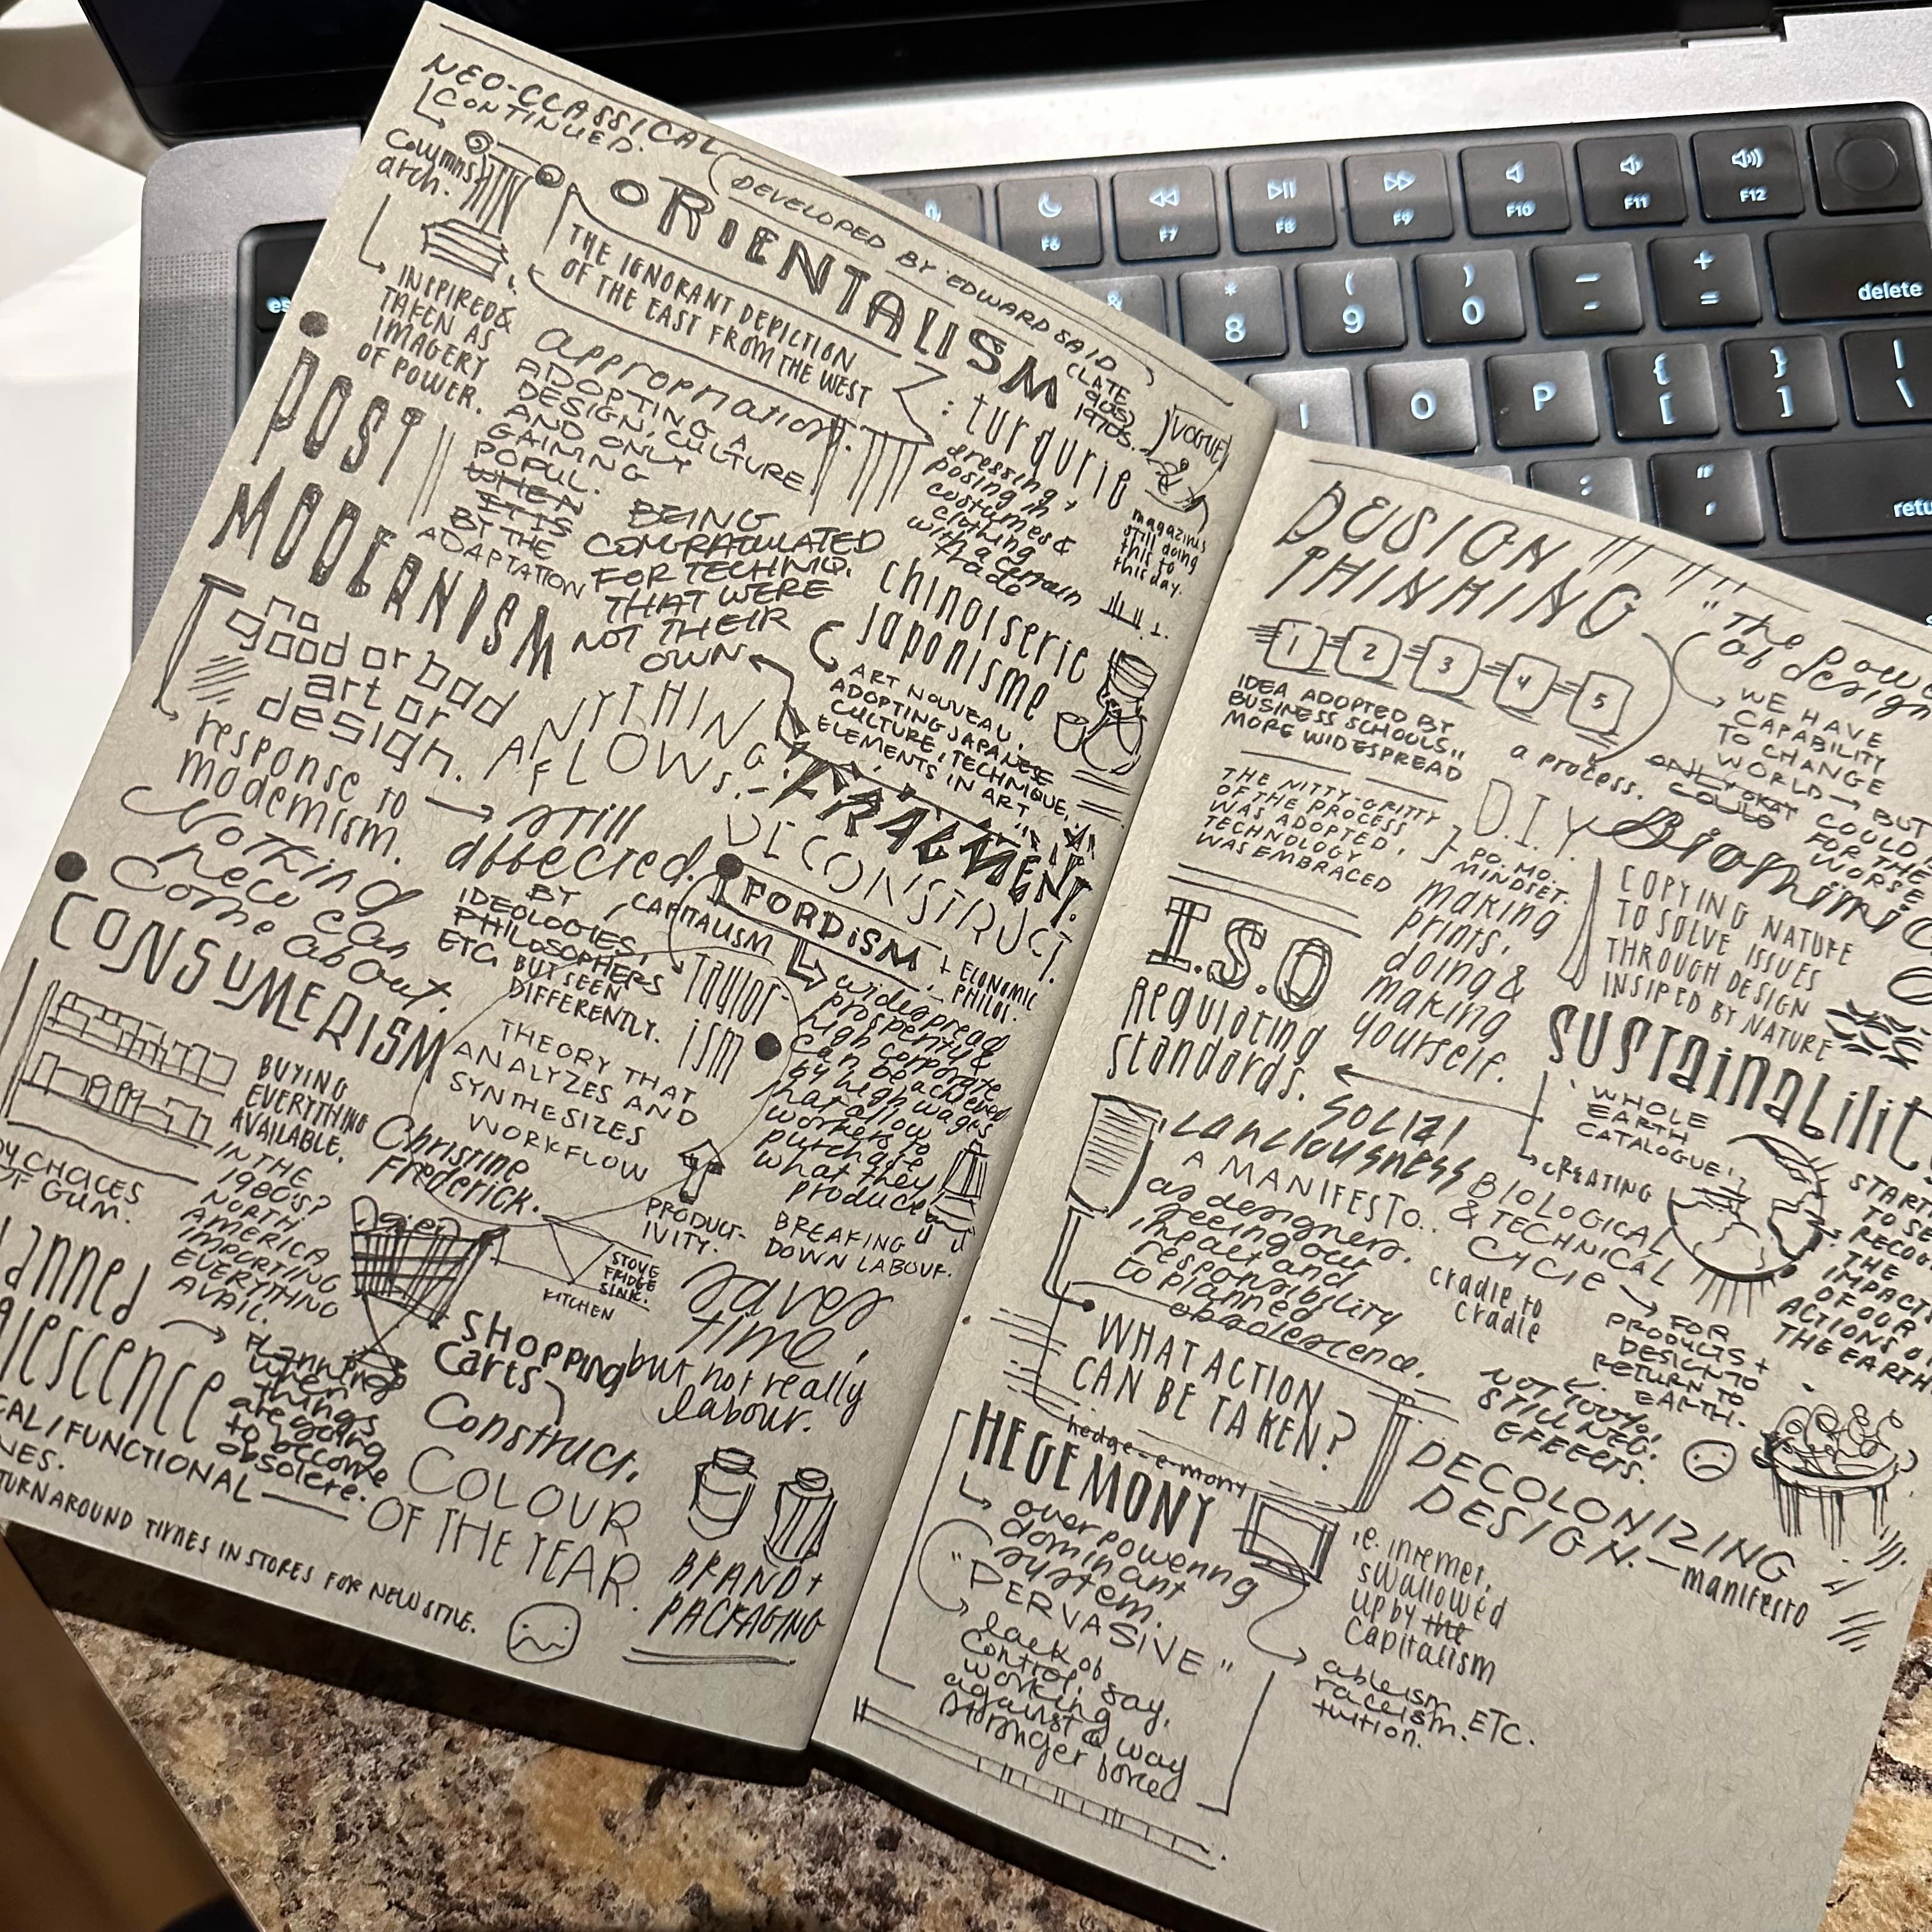 NEO-CLASSICAL
CONTINUED.
Columns
arch.
INSPIRED &
TAKEN AS
IMAGERY
OF POWER.
ORIENTALISM
DEVELOPED BY EDWARD SAID
CLATE
1970S.
THE IGNORANT DEPICTION
OF THE EAST FROM THE WEST
appropriation.
ADOPTING A
DESIGN, CULTURE
AND ONLY
GAINING
POPUL.
WHEN
IT IS
BY THE
ADAPTATION
BEING
CONGRATULATED
FOR TECHNIQ.
THAT WERE
NOT THEIR
OWN
: turqurie
dressing +
posing in
costumes &
clothing
with a certain
VOGUE
magazines
still doing
this to
this day.
chinoiserie
Japonisme
ART NOUVEAU.
ADOPTING JAPANESE
CULTURE, TECHNIQUE,
ELEMENTS IN ART
POST
MODERNISM
no
good or bad
art or
design.
response to
modernism.
ANYTHING
FLOWS.
still
affected.
BY
IDEOLOGIES,
PHILOSOPHERS
ETC.
BUT SEEN
DIFFERENTLY.
FRAGMENT.
DECONSTRUCT.
Nothing
new can
come about.
CAPITALISM
FORDISM
+ ECONOMIC
PHILOS.
widespread
prosperity &
high corporate
can be achieved
by high wages
that allow
workers to
purchase
what they
produce
Taylor-
ism
THEORY THAT
ANALYZES AND
SYNTHESIZES
WORKFLOW
PRODUCT-
IVITY.
BREAKING
DOWN LABOUR.
CONSUMERISM
BUYING
EVERYTHING
AVAILABLE.
IN THE
1980'S?
NORTH
AMERICA
IMPORTING
EVERYTHING
AVAIL.
CHOICES
OF GUM.
Christine
Frederick.
STOVE
FRIDGE
SINK.
KITCHEN
saves
time,
but not really
labour.
SHOPPING
Carts
Construct.
when
things
are going
to become
obsolete.
/FUNCTIONAL
COLOUR
OF THE YEAR.
TURNAROUND TIMES IN STORES FOR NEW STYLE.
BRAND +
PACKAGING
DESIGN
THINKING
1 2 3 4 5
IDEA ADOPTED BY
BUSINESS SCHOOLS..
MORE WIDESPREAD
a process.
THE NITTY-GRITTY
OF THE PROCESS
WAS ADOPTED,
TECHNOLOGY
WAS EMBRACED
"The
of design
WE HAVE
CAPABILITY
TO CHANGE
WORLD → BUT
COULD
FOR THE
WORSE
D.I.Y.
PO. MO.
MINDSET.
making
prints,
doing &
making
yourself.
COPYING NATURE
TO SOLVE ISSUES
THROUGH DESIGN
INSIPED BY NATURE
I.S.O
Regulating
standards.
"WHOLE
EARTH
CATALOGUE"
CREATING
BIOLOGICAL
& TECHNICAL
CYCLE
cradle to
cradle
FOR
PRODUCTS +
DESIGN TO
RETURN TO
EARTH.
NOT 100%,
STILL NEG.
EFFECTS.
THE
IMPACT
OF OUR
ACTIONS
THE EARTH
A MANIFESTO..
as designers.
seeing our
impact and
responsibility
to planned
obsolescence.
WHAT ACTION
CAN BE TAKEN?
hedge-e-mony
HEGEMONY
overpowering
dominant
system.
"PERVASIVE"
lack of
control, say,
working
against a way
stronger force
ie. internet,
swallowed
up by the
Capitalism
ableism
raceism. ETC.
tuition.
DECOLONIZING
DESIGN. — manifesto